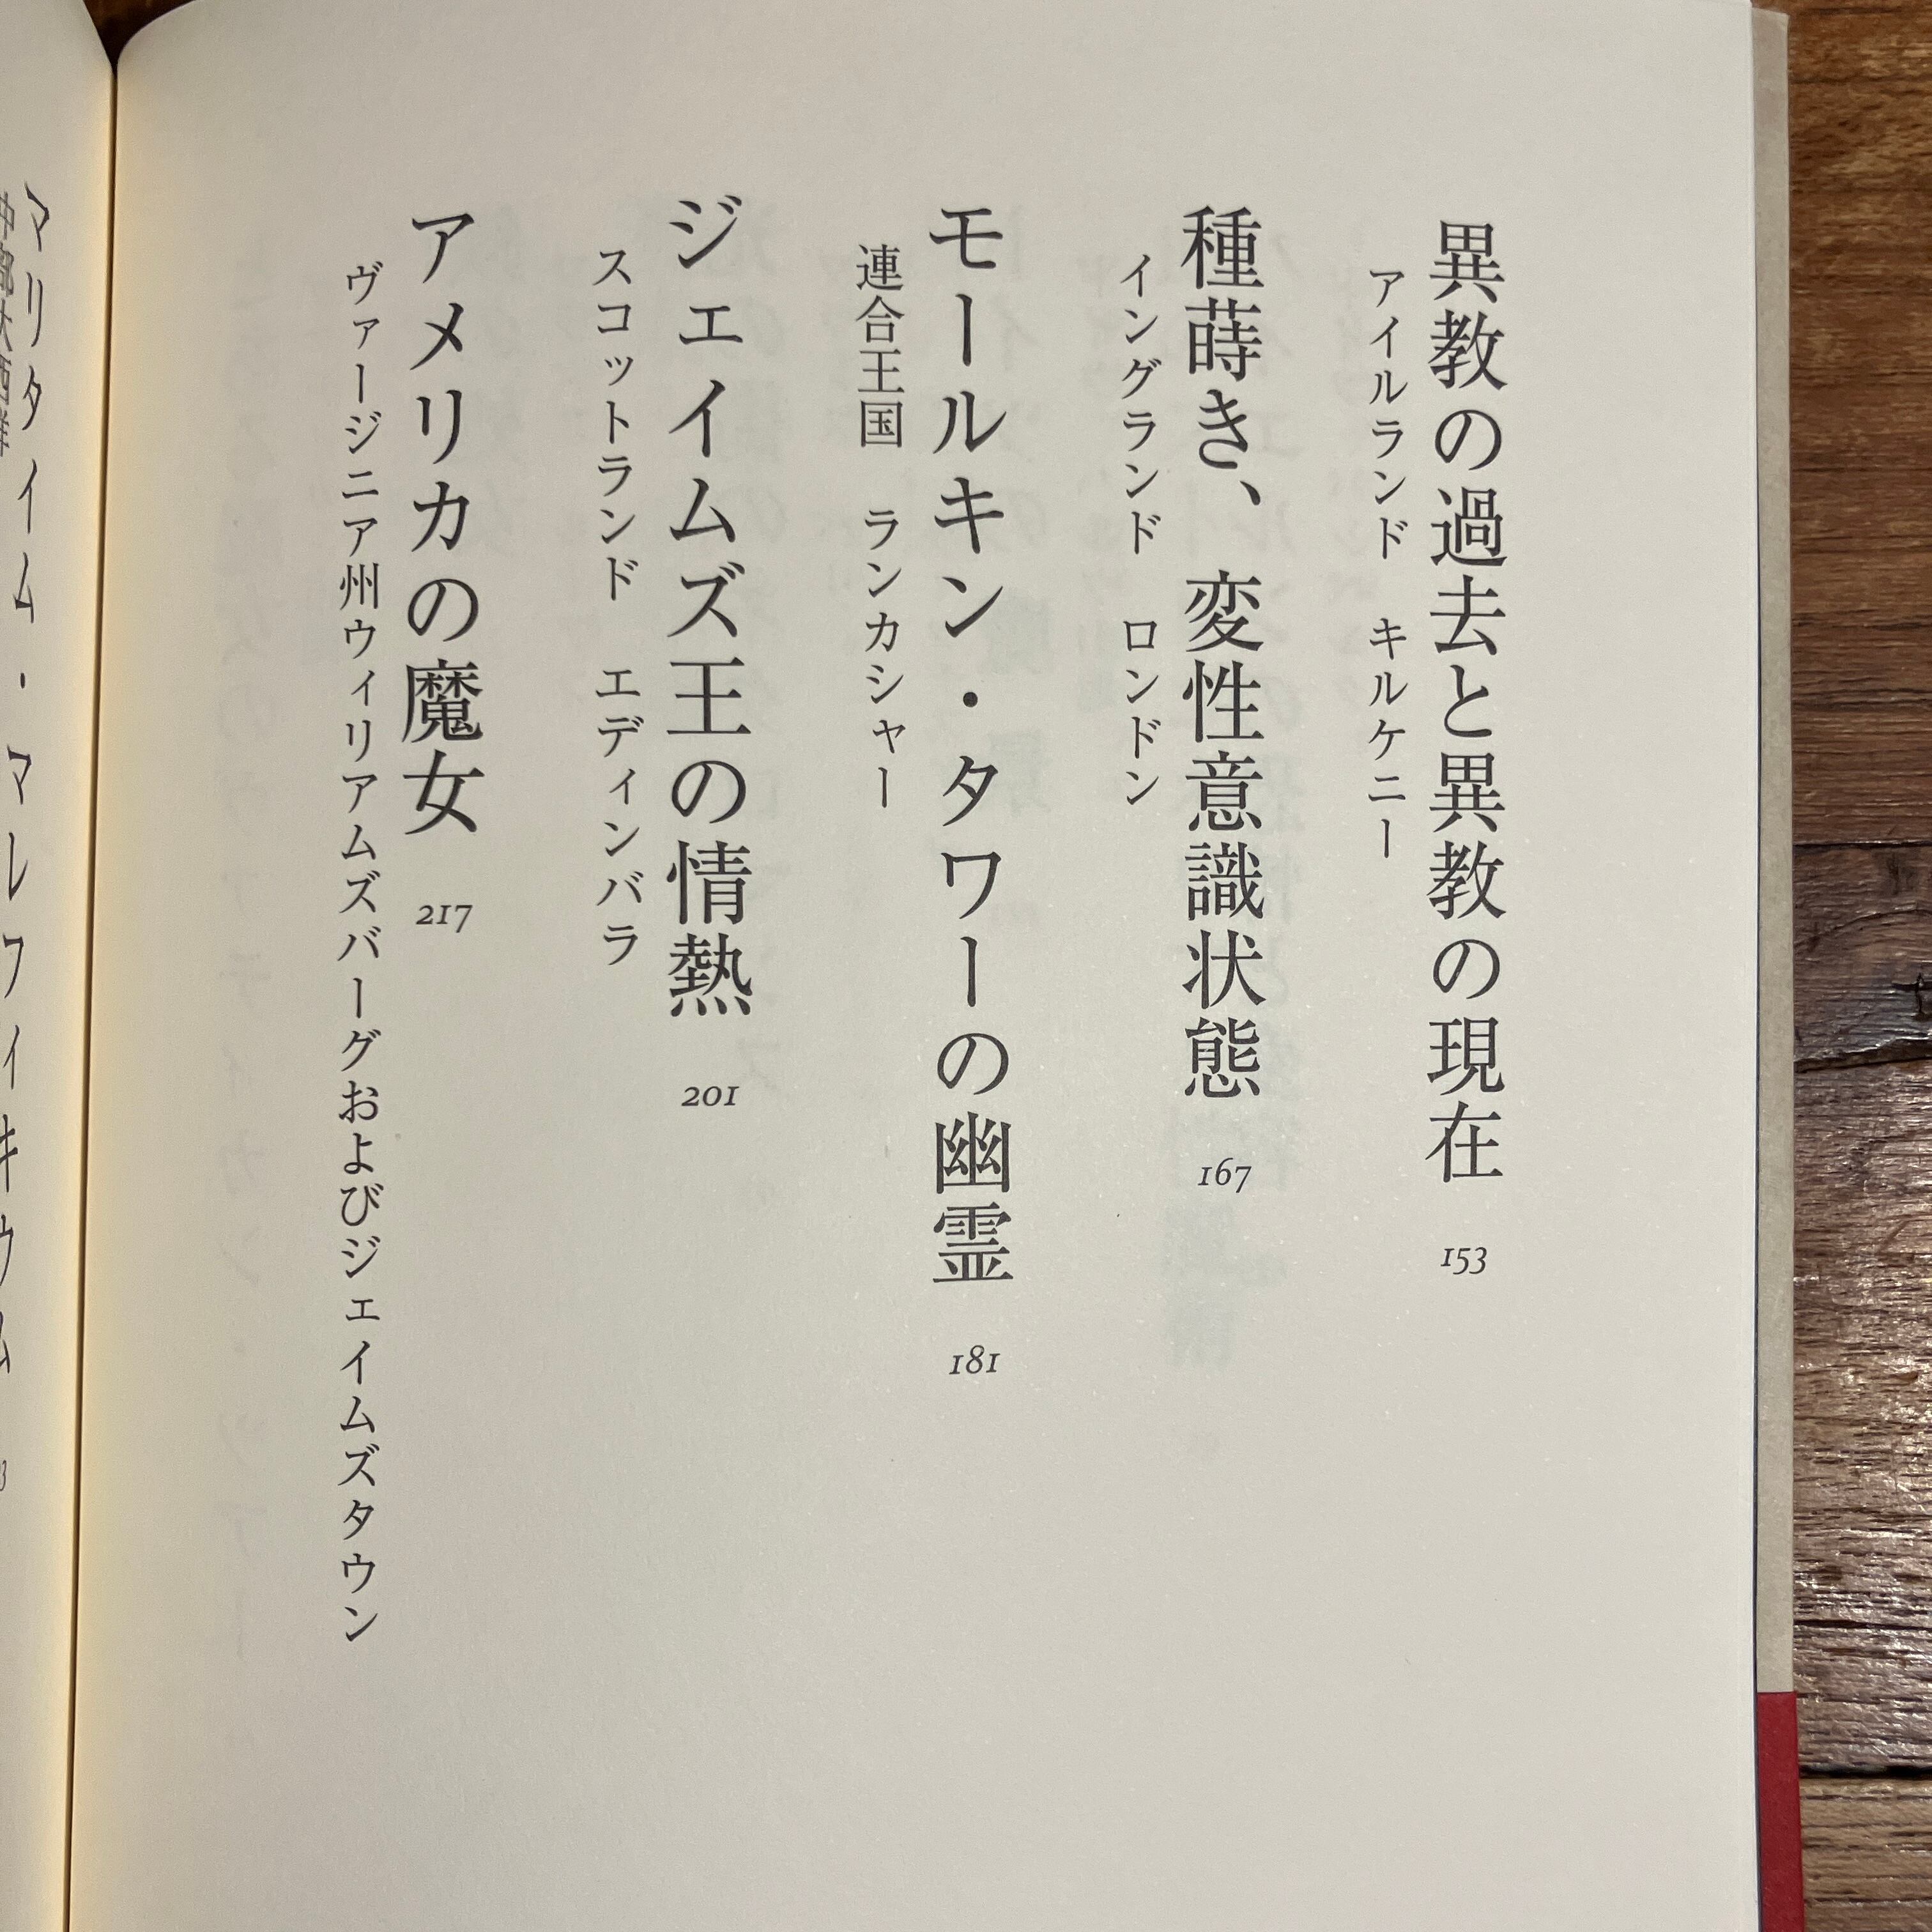 異教の過去と異教の現在 153
アイルランド キルケニー
種蒔き、変性意識状態 167
イングランド ロンドン
モールキン・タワーの幽霊 181
連合王国 ランカシャー
ジェイムズ王の情熱 201
スコットランド エディンバラ
アメリカの魔女 217
ヴァージニア州ウィリアムズバーグおよびジェイムズタウン
マリタイム・マレフィキウム